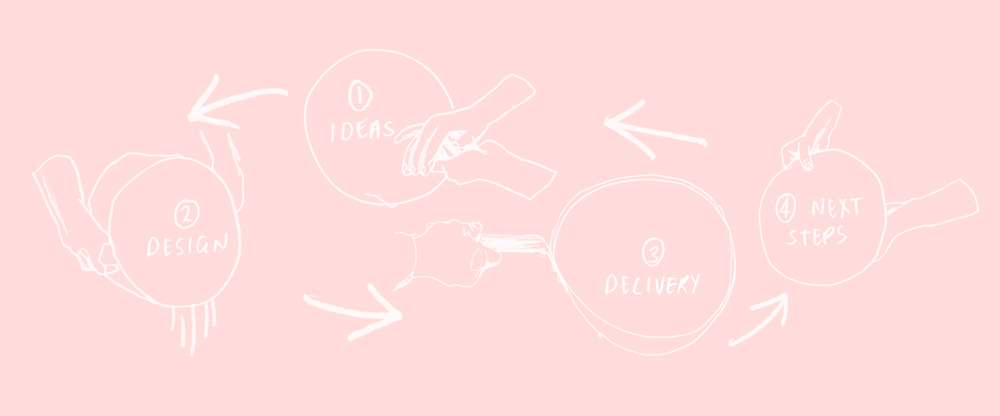 1
IDEAS
2
DESIGN
3
DELIVERY
4 NEXT
STEPS